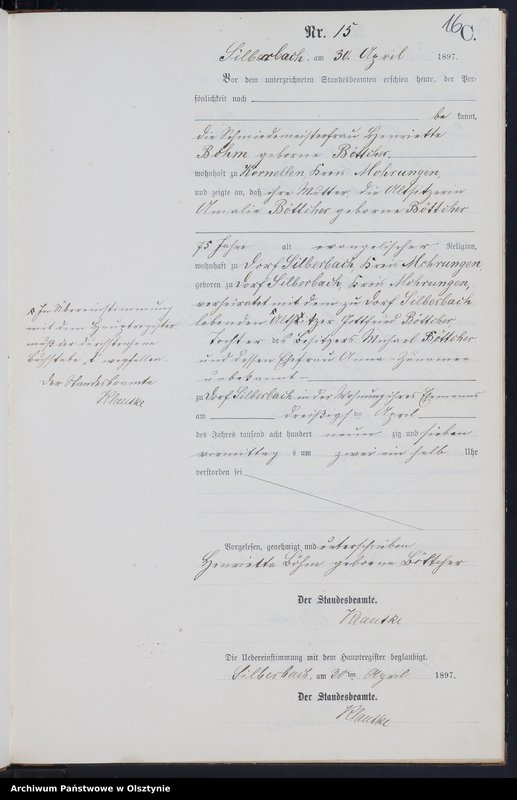 16
C.
Nr. 15
Silberbach, am 30. April 1897.
Vor dem unterzeichneten Standesbeamten erschien heute, der Per-
sönlichkeit nach
be kannt,
die Schmiedemeisterfrau Henriette
Böhm geborne Böttcher
wohnhaft zu Kornellen, Kreis Mohrungen,
und zeigte an, daß ihre Mutter die Altsitzerin
Amalie Böttcher geborne Böttcher
75 Jahre alt evangelischer Religion,
wohnhaft zu Dorf Silberbach, Kreis Mohrungen,
geboren zu Dorf Silberbach, Kreis Mohrungen,
verheiratet mit dem zu Dorf Silberbach
lebenden Altsitzer Gottfried Böttcher
Tochter des Besitzers Michael Böttcher
und dessen Ehefrau Anna Zunamen
unbekannt
zu Dorf Silberbach in der Wohnung ihres Ehemanns
am dreißigsten April
des Jahres tausend acht hundert neun zig und sieben
vormittags um zwei ein halb Uhr
verstorben sei
In Übereinstimmung
mit dem Hauptregister
muß der durchstrichene
Buchstabe "t" wegfallen.
Der Standesbeamte
Klautke
Vorgelesen, genehmigt und unterschrieben
Henriette Böhm geborne Böttcher
Der Standesbeamte.
Klautke
Die Uebereinstimmung mit dem Hauptregister beglaubigt.
Silberbach, am 30ten April 1897.
Der Standesbeamte.
Klautke
Archiwum Państwowe w Olsztynie